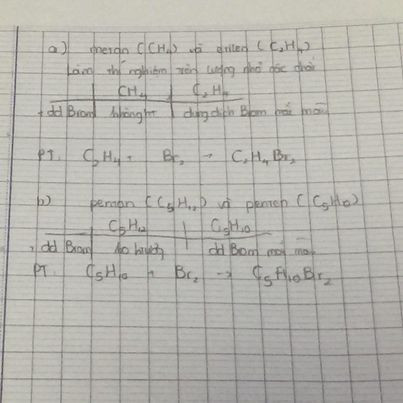 a) metan (CH4) và etilen (C2H4)
Làm thí nghiệm trên lượng nhỏ các chất
CH4 C2H4
dd Brom không ht dung dịch Brom mất màu
PT. C2H4 + Br2 → C2H4Br2
b) pentan (C5H12) và penten (C5H10)
C5H12 C5H10
dd Brom ko ht dd Brom mất màu
PT. C5H10 + Br2 → C5H10Br2